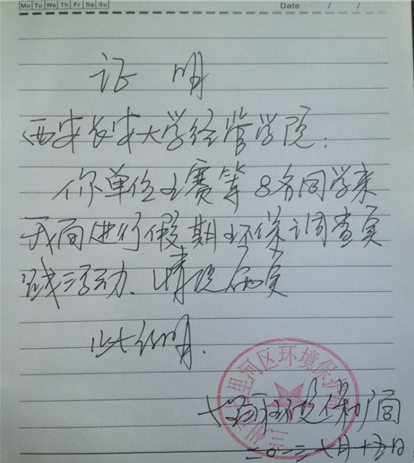 Mo Tu We Th Fr Sa Su
Date / /
证 明
西安长安大学经管学院:
你单位王赛等8名同学来
我局进行假期环保调查实
践活动. 情况属实
此证明.
里河区环境保护
环境保护局
二〇一二 八月十五日